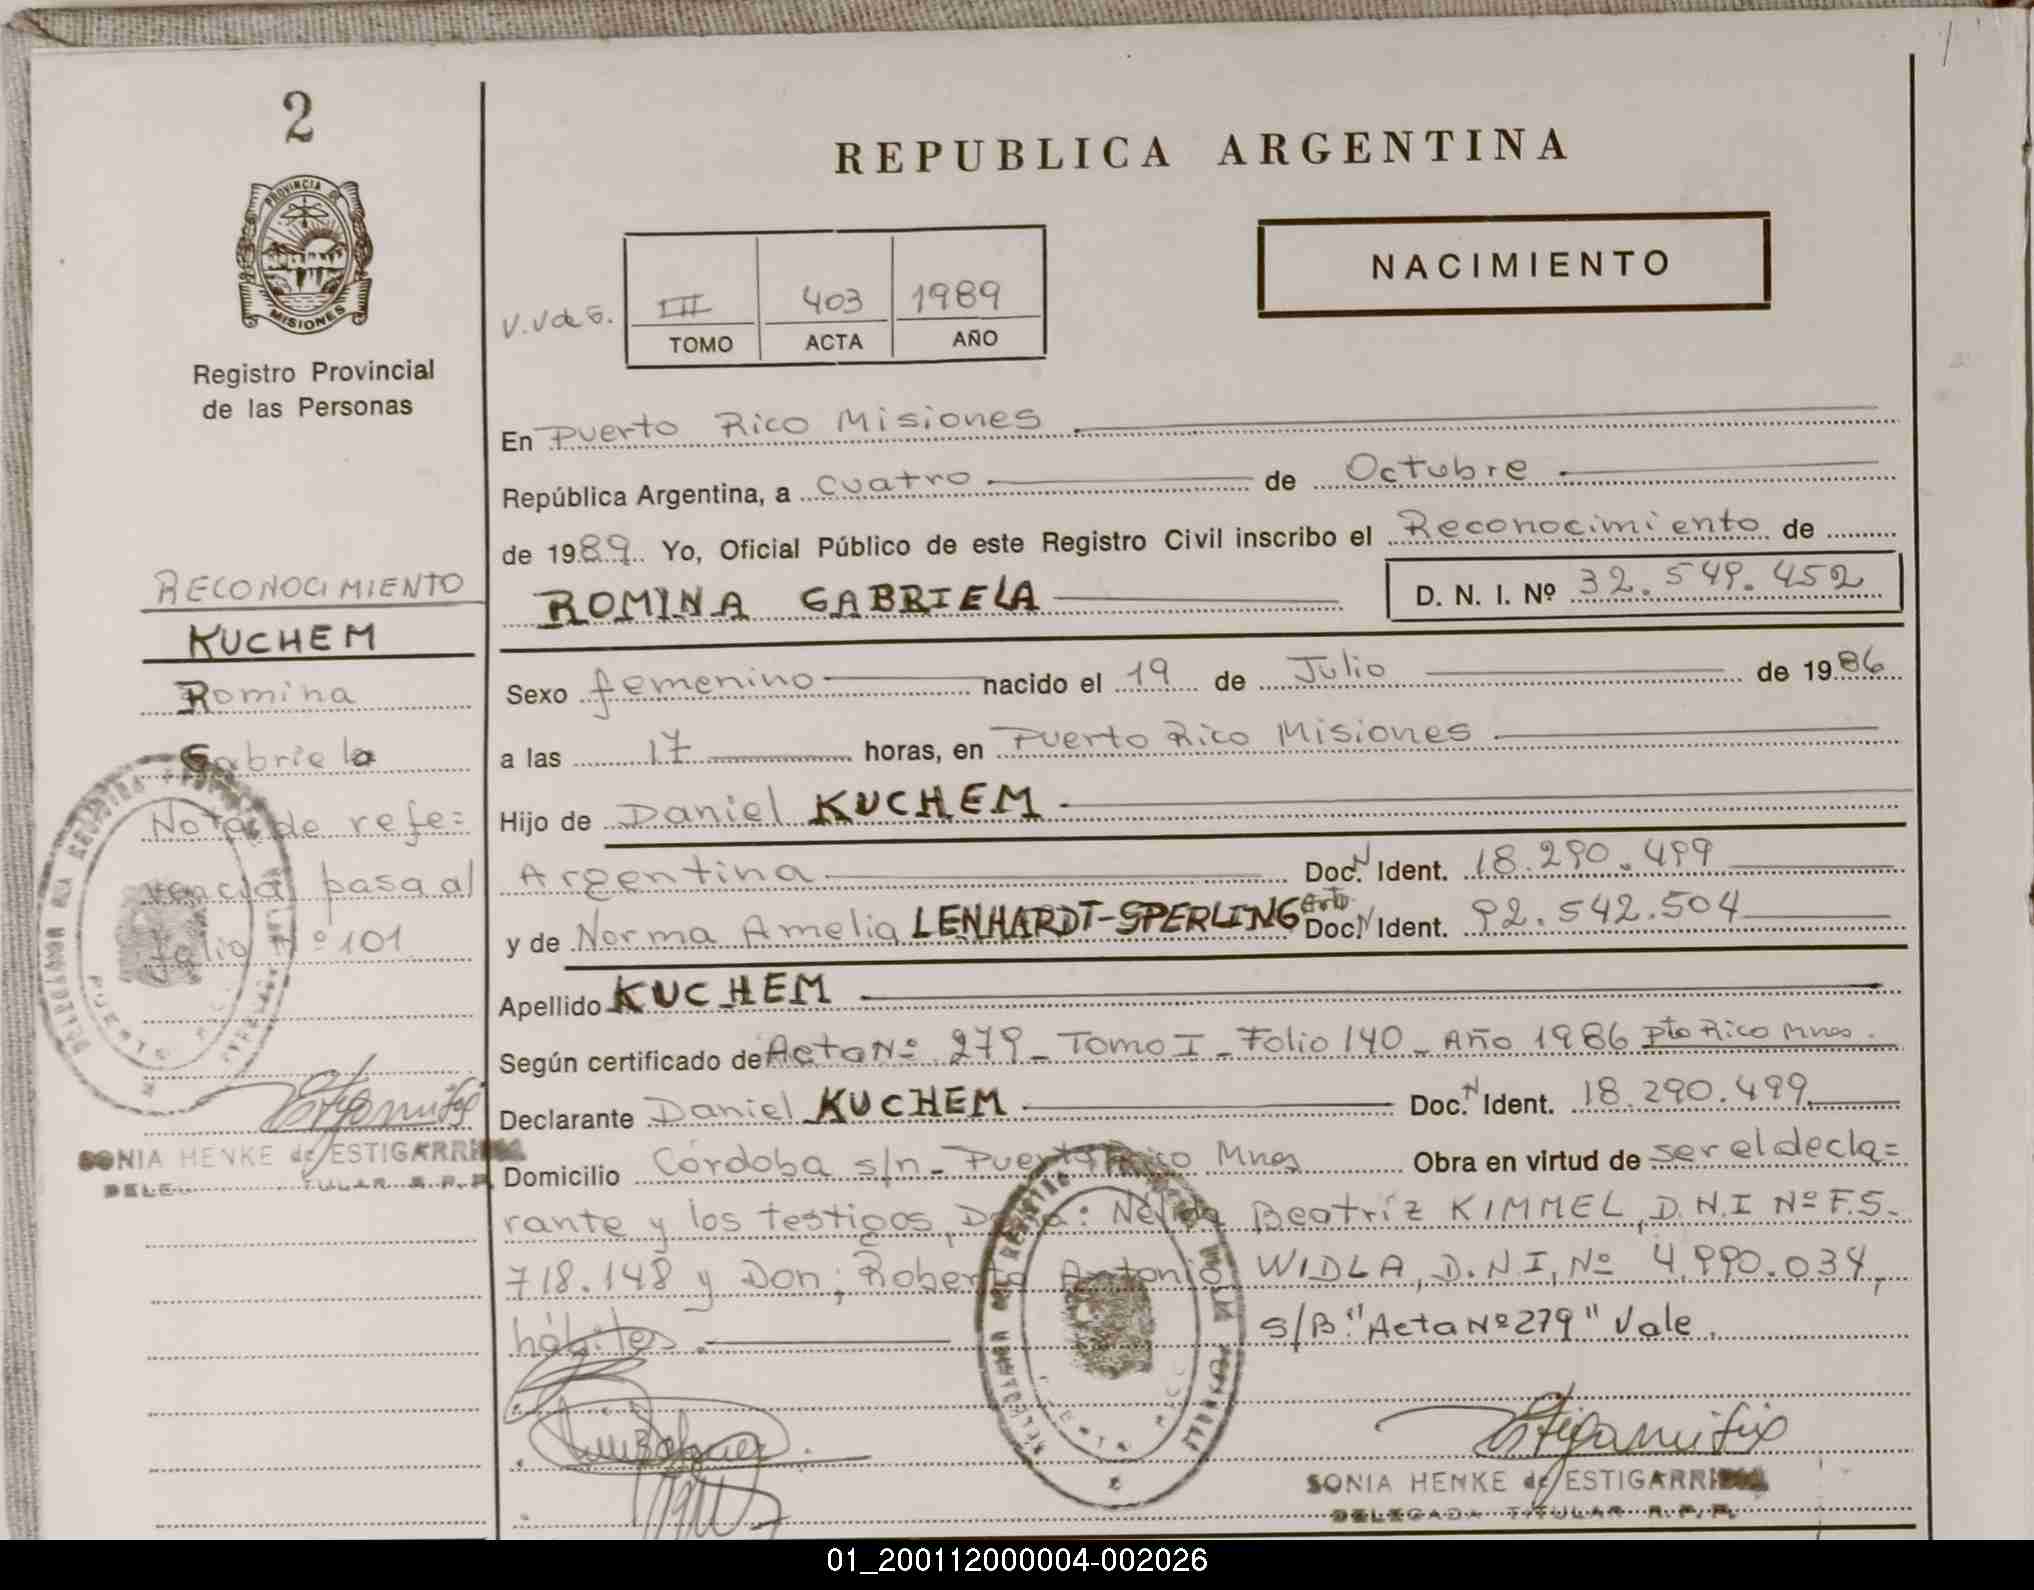 2
PROVINCIA DE
MISIONES
Registro Provincial
de las Personas
RECONOCIMIENTO
KUCHEM
Romina
Gabriela
Nota de refe=
rencia pasa al
folio Nº 101
SONIA HENKE de ESTIGARRIBIA
REPUBLICA ARGENTINA
NACIMIENTO
III 403 1989
TOMO ACTA AÑO
En Puerto Rico Misiones
República Argentina, a cuatro de Octubre
de 1989. Yo, Oficial Público de este Registro Civil inscribo el Reconocimiento de
ROMINA GABRIELA D. N. I. Nº 32.549.452
Sexo femenino nacido el 19 de Julio de 1986
a las 17 horas, en Puerto Rico Misiones
Hijo de Daniel KUCHEM
Argentina Doc. N Ident. 18.290.499
y de Norma Amelia LENHARDT-SPERLING Doc. N Ident. 92.542.504
Apellido KUCHEM
Según certificado de Acta Nº 279_ Tomo I _ Folio 140 _ Año 1986 Pto Rico Mnes.
Declarante Daniel KUCHEM Doc. N Ident. 18.290.499
Domicilio Córdoba s/n_ Puerto Rico Mnes Obra en virtud de ser el decla=
rante y los testigos, Doña: Nélida Beatríz KIMMEL, D.N.I Nº F.5.
718.148 y Don; Roberto Antonio WIDLA, D.N.I, Nº 4.990.034,
hábiles.
S/B: "Acta Nº 279" Vale.
SONIA HENKE de ESTIGARRIBIA
DELEGADA TITULAR R.P.P.
01_200112000004-002026